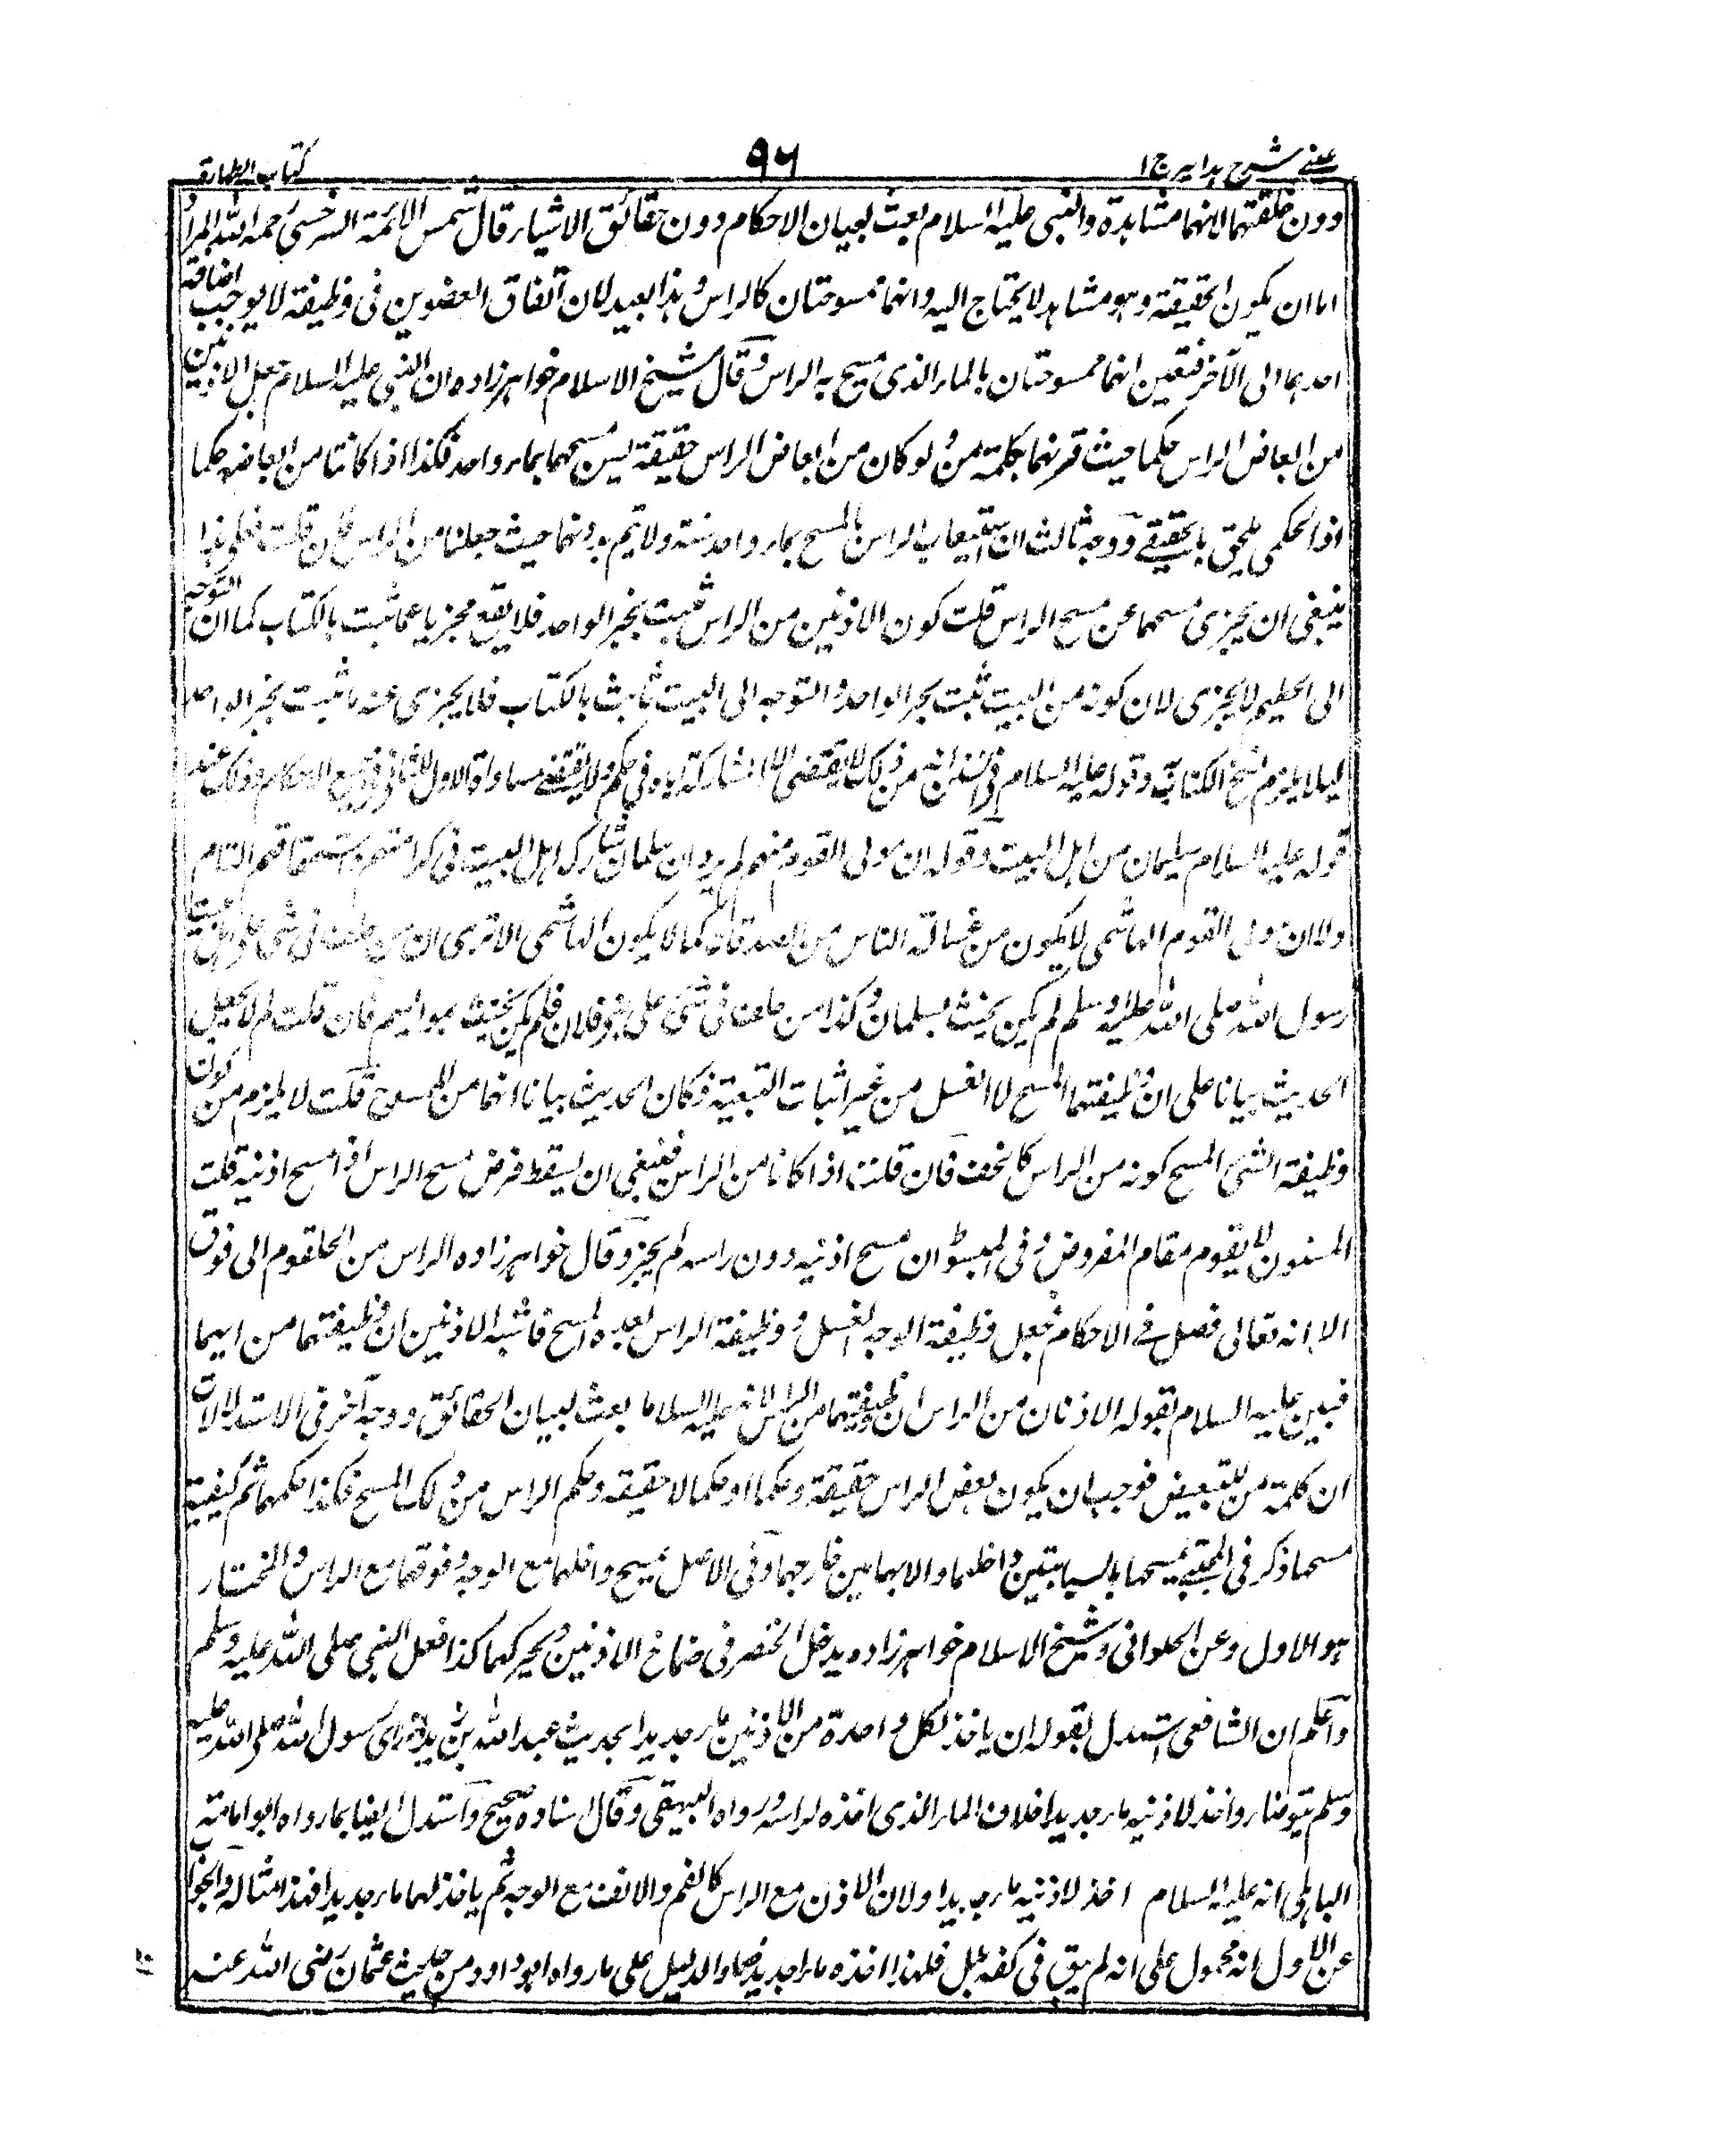 عینی شرح ہدایہ ج ۱
۹۶
کتاب الطہارة
دون خلقتهما لانهما مشاهدة والنبی علیه السلام بعث لبیان الاحکام دون حقائق الاشیاء وقال شمس الائمة السرخسی رحمه الله المراد
اما ان یکون الحقیقة وهو مشاهد لا یحتاج الیه وانهما ممسوحتان کالراس وهذا بعید لان اتفاق العضوین فی وظیفة لا یوجب اضافة
احدهما الی الآخر فتعین انهما ممسوحتان بالماء الذی مسح به الراس وقال شیخ الاسلام خواهر زاده ان النبی علیه السلام جعل الاذنین
من ابعاض الراس حکما حیث قرنهما بکلمة من ولو کان من ابعاض الراس حقیقة یسن مسحهما بماء واحد فکذا اذا کانتا من ابعاضه حکما
اذ الحکمی ملحق بالحقیقی ووجه ثالث ان استیعاب الراس بالمسح بماء واحد سنة ولا یتم بدونهما حیث جعلتا من الراس فان قلت فعلی هذا
ینبغی ان یجزی مسحهما عن مسح الراس قلت کون الاذنین من الراس ثبت بخبر الواحد فلا یقع مجزیا عما ثبت بالکتاب کما ان التوجه
الی الحطیم لا یجزی لان کونه من البیت ثبت بخبر الواحد والتوجه الی البیت ثابت بالکتاب فلا یجزی عنه ما ثبت بخبر الواحد
لئلا یلزم نسخ الکتاب وقوله علیه السلام فی انه من ذلک لا یقتضی الا مشارکته ایاه فی حکم ولا یقتضی مساواة الاول للثانی فی جمیع الاحکام وذلک عند
قوله علیه السلام سلیمان من اهل البیت وقوله ان مولی القوم منهم لم یرد ان سلمان شارک اهل البیت فی کرامتهم واستحقاقهم التام
ولا ان مولی القوم الهاشمی لا یکون من غسالة الناس من الصدقات کما لا یکون الهاشمی الا تری ان من حلف فی شی علی اهل بیت
رسول الله صلی الله علیه وسلم لم یکن یحنث بسلمان وکذا من حلف فی شی علی بنی فلان فلم یکن یحنث بموالیهم فان قلت لم لا یجعل
الحدیث بیانا علی ان وظیفتهما المسح لا الغسل من غیر اثبات التبعیة فکان الحدیث بیانا انهما من الممسوح قلت لا یلزم من کون
وظیفة الشی المسح کونه من الراس کالخف فان قلت اذا کانا من الراس فینبغی ان یسقط فرض مسح الراس اذا مسح اذنیه قلت
المسنون لا یقوم مقام المفروض وفی المبسوط ان مسح اذنیه دون راسه لم یجز وقال خواهر زاده الراس من الحلقوم الی فوق
الا انه تعالی فصل فی الاحکام فجعل وظیفة الوجه الغسل و وظیفة الراس بعده المسح فاشتبه الاذنین ان وظیفتهما من ایهما
فبین علیه السلام بقوله الاذنان من الراس ان وظیفتهما من الراس لانه علیه السلام ما بعث لبیان الحقائق ووجه آخر فی الاستدلالات
ان کلمة من للتبعیض فوجب ان یکون بعض الراس حقیقة وحکما او حکما لا حقیقة وحکم الراس من ذلک المسح فکذا حکمهما ثم کیفیة
مسحها ذکر فی المجتبی یمسحها بالسبابتین داخلها والابهامین خارجها وفی الاصل یمسح داخلها مع الوجه وفوقها مع الراس والمختار
هو الاول وعن الحلوانی وشیخ الاسلام خواهر زاده یدخل الخنصر فی صماخ الاذنین ویحرکهما کذا فعل النبی صلی الله علیه وسلم
واعلم ان الشافعی استدل بقوله ان یاخذ لکل واحدة من الاذنین ماء جدیدا بحدیث عبد الله بن زید انه رای رسول الله صلی الله علیه
وسلم یتوضاء واخذ لاذنیه ماء جدیدا خلاف الماء الذی اخذه لراسه ورواه البیهقی وقال اسناده صحیح واستدل ایضا بما رواه ابو امامة
الباهلی انه علیه السلام اخذ لاذنیه ماء جدیدا ولان الاذن مع الراس کالفم والانف مع الوجه ثم یاخذ لهما ماء جدیدا فهذا مثاله والجواب
عن الاول انه محمول علی انه لم یبق فی کفه بلل فلهذا اخذه ماء جدیدا والدلیل علی ما رواه ابو داود من حدیث عثمان رضی الله عنه